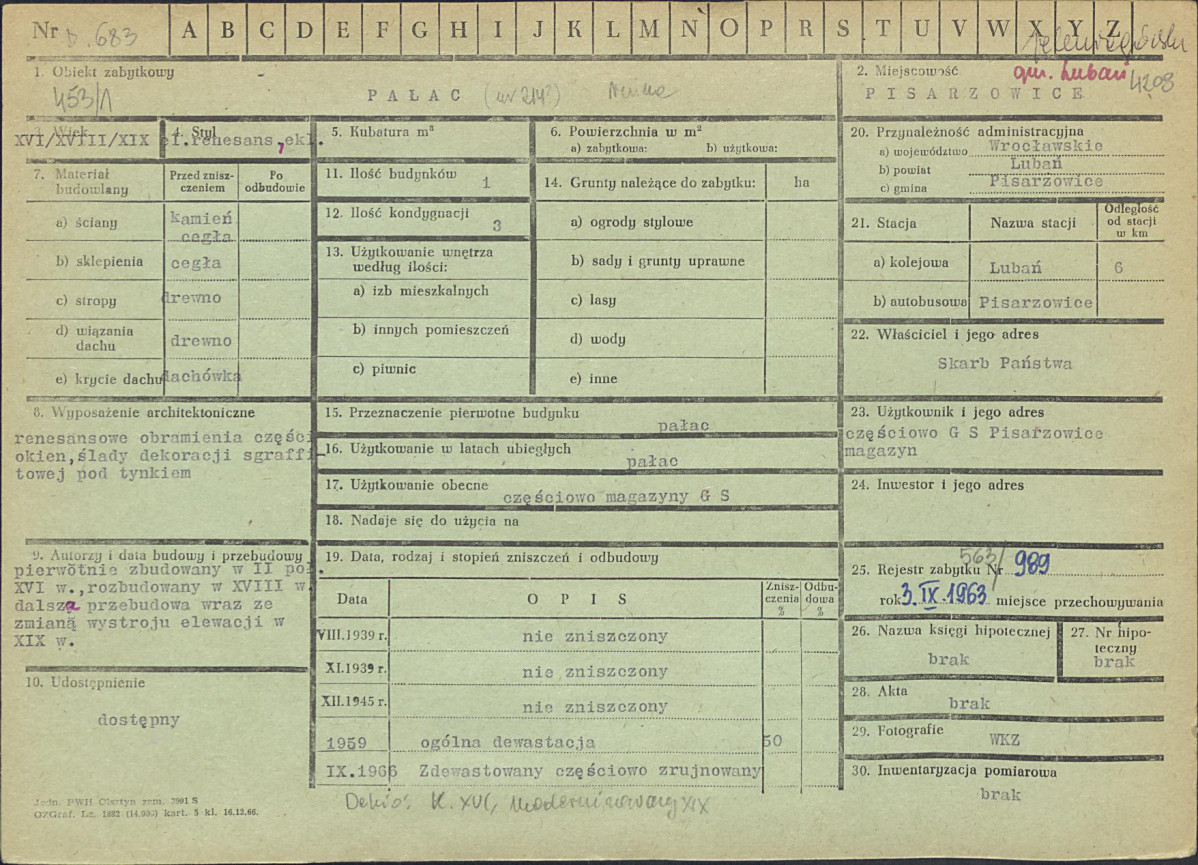 Nr D.683 A B C D E F G H I J K L M N O P R S T U V W X Y Z
1. Obiekt zabytkowy
453/1
PAŁAC
2. Miejscowość
gm. Lubań 4208
PISARZOWICE
3. Wiek
XVI/XVIII/XIX
4. Styl
cf.renesans,ekl.
5. Kubatura m³
6. Powierzchnia w m²
a) zabytkowa: b) użytkowa:
7. Materiał budowlany
Przed zniszczeniem
Po odbudowie
a) ściany kamień
cegła
b) sklepienia cegła
c) stropy drewno
d) wiązania dachu drewno
e) krycie dachu dachówka
11. Ilość budynków 1
12. Ilość kondygnacji 3
13. Użytkowanie wnętrza
według ilości:
a) izb mieszkalnych
b) innych pomieszczeń
c) piwnic
14. Grunty należące do zabytku: ha
a) ogrody stylowe
b) sady i grunty uprawne
c) lasy
d) wody
e) inne
20. Przynależność administracyjna
a) województwo Wrocławskie
b) powiat Lubań
c) gmina Pisarzowice
21. Stacja Nazwa stacji Odległość od stacji w km
a) kolejowa Lubań 6
b) autobusowa Pisarzowice
22. Właściciel i jego adres
Skarb Państwa
8. Wyposażenie architektoniczne
renesansowe obramienia części
okien,ślady dekoracji sgraffi
towej pod tynkiem
15. Przeznaczenie pierwotne budynku
pałac
16. Użytkowanie w latach ubiegłych
pałac
17. Użytkowanie obecne
częściowo magazyny G S
18. Nadaje się do użycia na
23. Użytkownik i jego adres
częściowo G S Pisarzowice
magazyn
24. Inwestor i jego adres
9. Autorzy i data budowy i przebudowy
pierwotnie zbudowany w II poł.
XVI w.,rozbudowany w XVIII w.
dalsza przebudowa wraz ze
zmianą wystroju elewacji w
XIX w.
10. Udostępnienie
dostępny
19. Data, rodzaj i stopień zniszczeń i odbudowy
Data OPIS Zniszczenia % Odbudowa %
VIII.1939 r. nie zniszczony
XI.1939 r. nie zniszczony
XII.1945 r. nie zniszczony
1959 ogólna dewastacja 50
IX.1966 Zdewastowany częściowo zrujnowany
25. Rejestr zabytku Nr 563/989
rok 3.IX.1963 miejsce przechowywania
26. Nazwa księgi hipotecznej
brak
27. Nr hipoteczny
brak
28. Akta
brak
29. Fotografie
WKZ
30. Inwentaryzacja pomiarowa
brak
Jedn. PWH Olsztyn zam. 7901 S
OZGraf. Lz. 1882 (14.000) kart. 5 kl. 16.12.66.
Dehio: K. XVI, modernizowany XIX